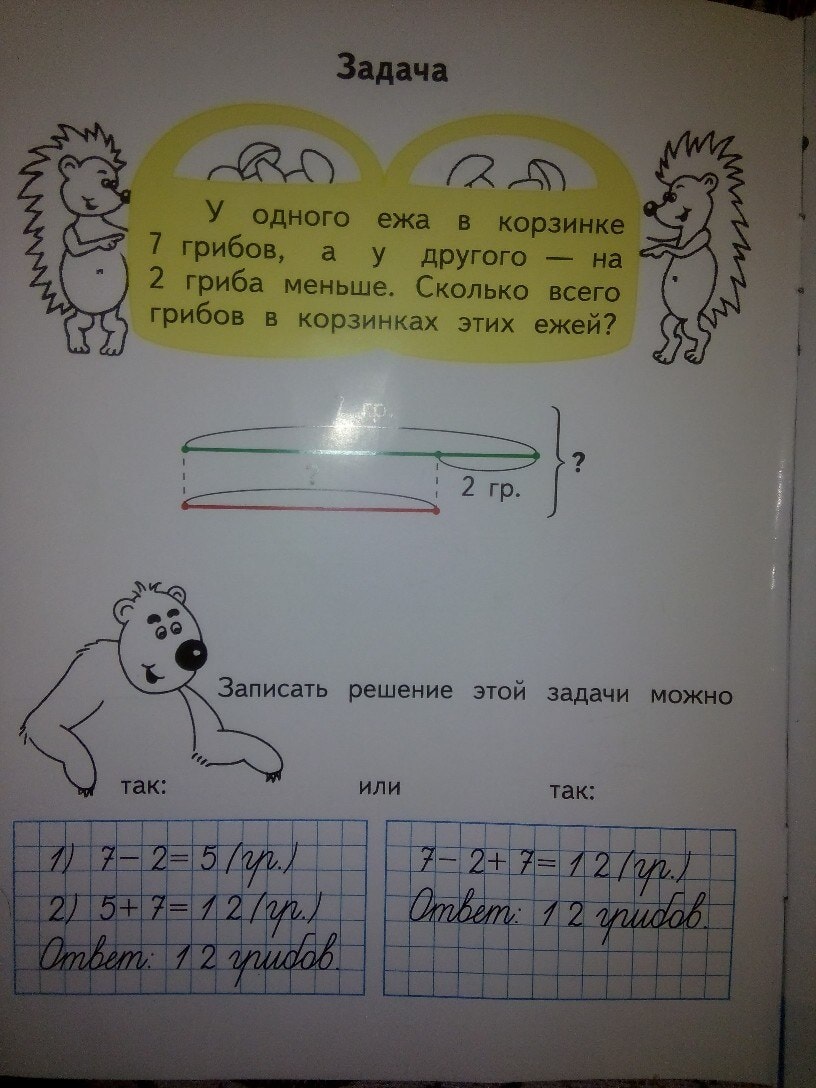 Задача
У одного ежа в корзинке
7 грибов, а у другого — на
2 гриба меньше. Сколько всего
грибов в корзинках этих ежей?
гр.
?
?
2 гр.
Записать решение этой задачи можно
так: или так:
1) 7 – 2 = 5 (гр.)
2) 5 + 7 = 12 (гр.)
Ответ: 12 грибов.
7 – 2 + 7 = 12 (гр.)
Ответ: 12 грибов.